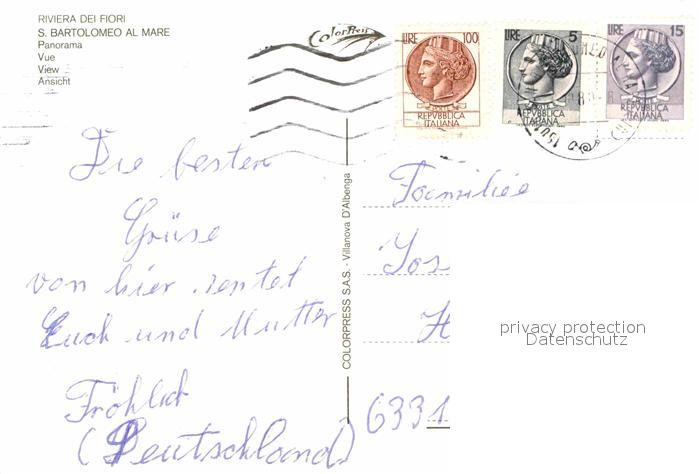 RIVIERA DEI FIORI
S. BARTOLOMEO AL MARE
Panorama
Vue
View
Ansicht
ColorPress
LIRE 100
REPVBBLICA
ITALIANA
LIRE 5
REPVBBLICA
ITALIANA
LIRE 15
REPVBBLICA
ITALIANA
Die besten
Grüse
von hier sentet
Euch und Mutter
Fröhlich
(Deutschland)
COLORPRESS S.A.S. - Villanova D'Albenga
Familiée
Jos
H
6331
privacy protection
Datenschutz